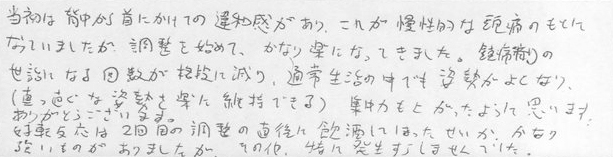 当初は背中から首にかけての違和感があり、これが慢性的な頭痛のもとに
なっていましたが、調整を始めて、かなり楽になってきました。鎮痛剤の
世話になる回数が格段に減り、通常生活の中でも姿勢がよくなり、
(真っ直ぐな姿勢を楽に維持できる) 集中力も上がったように思います。
ありがとうございます。
好転反応は2回目の調整の直後に飲酒してしまったせいか、かなり
強いものがありましたが、その他、特に発生すらしませんでした。